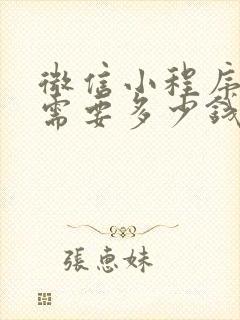 微信小程序
需要多少錢
張惠妹